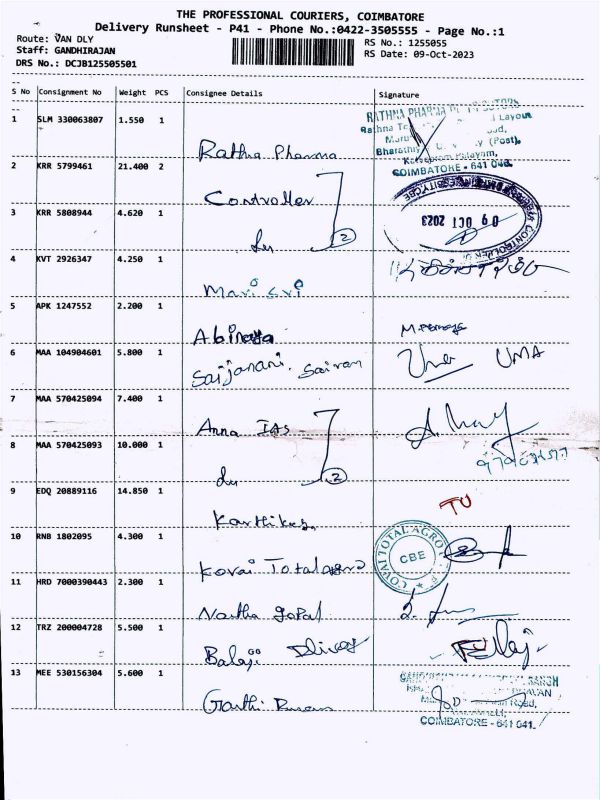 THE PROFESSIONAL COURIERS, COIMBATORE
Delivery Runsheet - P41 - Phone No.:0422-3505555 - Page No.:1
Route: VAN DLY
RS No.: 1255055
Staff: GANDHIRAJAN
RS Date: 09-Oct-2023
DRS No.: DCJB125505501
S No Consignment No Weight PCS Consignee Details Signature
1 SLM 330063807 1.550 1
RATHNA PHARMA
Layout
Rathna
Bharathiy (Post),
COIMBATORE - 641 046.
Rathna Pharma
2 KRR 5799461 21.400 2
Controller
3 KRR 5808944 4.620 1
09 OCT 2023
CONTROLLER
2
4 KVT 2926347 4.250 1
Mari Sri
5 APK 1247552 2.200 1
Abinaya
6 MAA 104904601 5.800 1
Saijanani. Sairam
UMA
7 MAA 570425094 7.400 1
Anna IAS
8 MAA 570425093 10.000 1
2
9 EDQ 20889116 14.850 1
TU
10 RNB 1802095 4.300 1
COVAI TOTAL AGRO
CBE
Kovai Total agro
11 HRD 7000390443 2.300 1
Nantha gopal
12 TRZ 200004728 5.500 1
Balaji
13 MEE 530156304 5.600 1
Road,
COIMBATORE - 641 041.